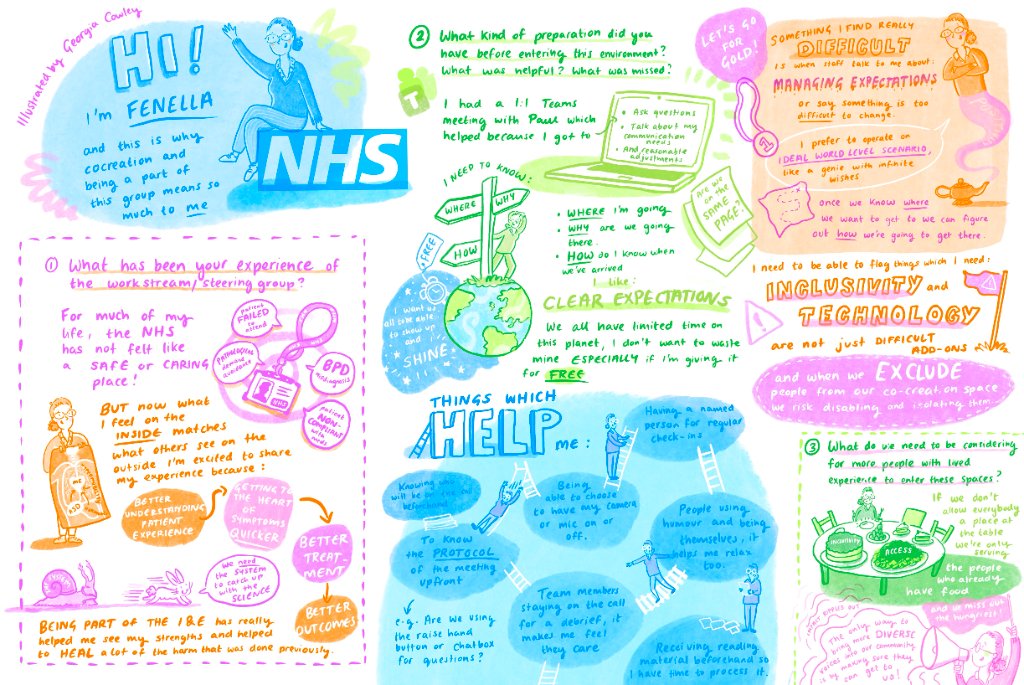 Illustrated by Georgia Cawley
HI!
I'm FENELLA
and this is why
cocreation and
being a part of
this group means so
much to me
NHS
① What has been your experience of
the workstream/steering group?
For much of my
life, the NHS
has not felt like
a SAFE or CARING
place!
patient
FAILED
to attend
BPD
patient
NON-
COMPLIANT
with meds
BUT now what
I feel on the
INSIDE matches
what others see on the
outside I'm excited to share
my experience because:
ME
ASD
BETTER
UNDERSTANDING
PATIENT
EXPERIENCE
GETTING TO
THE HEART
OF
SYMPTOMS
QUICKER
BETTER
TREAT-
MENT
BETTER
OUTCOMES
We need
the SYSTEM
to catch up
with the
SCIENCE
BEING PART OF THE I&E has really
helped me see my strengths and helped
to HEAL a lot of the harm that was done previously.
② What kind of preparation did you
have before entering this environment?
What was helpful? What was missed?
T
I had a 1:1 Teams
meeting with Paul which
helped because I got to
• Ask questions
• Talk about my
communication
needs
• And reasonable
adjustments
I NEED TO KNOW:
WHERE
WHY
HOW
• WHERE I'm going
• WHY are we going
there.
• HOW do I know when
we've arrived
Are we
on the
SAME
PAGE?
FREE
I want us
all to be able
to show up
and
SHINE
I like:
CLEAR EXPECTATIONS
We all have limited time on
this planet, I don't want to waste
mine ESPECIALLY if I'm giving it
for FREE
THINGS WHICH
HELP me:
Having a named
person for regular
check-ins
Knowing who
will be on the call
beforehand
Being
able to choose
to have my camera
or mic on or
off.
People using
humour and being
themselves, it
helps me relax
too.
To know
the PROTOCOL
of the meeting
upfront
e.g. Are we using
the raise hand
button or chatbox
for questions?
Team members
staying on the call
for a debrief, it
makes me feel
they care
Receiving reading
material beforehand so
I have time to process it.
LET'S GO
FOR
GOLD!
SOMETHING I FIND REALLY
DIFFICULT
is when staff talk to me about:
MANAGING EXPECTATIONS
or say something is too
difficult to change.
I prefer to operate on
IDEAL WORLD LEVEL SCENARIO,
like a genie with infinite
wishes
once we know where
we want to get to we can figure
out how we're going to get there.
I need to be able to flag things which I need:
INCLUSIVITY and
TECHNOLOGY
are not just DIFFICULT
ADD-ONS
and when we EXCLUDE
people from our co-creation space
we risk disabling and isolating them
③ What do we need to be considering
for more people with lived
experience to enter these spaces?
INCLUSIVITY
ACCESS
If we don't
allow everybody
a place at
the table
we're only
serving
the people
who already
have food
and we miss out
the hungriest!
The only way to
bring more DIVERSE
voices into our community
is by making sure they
can get to
us!